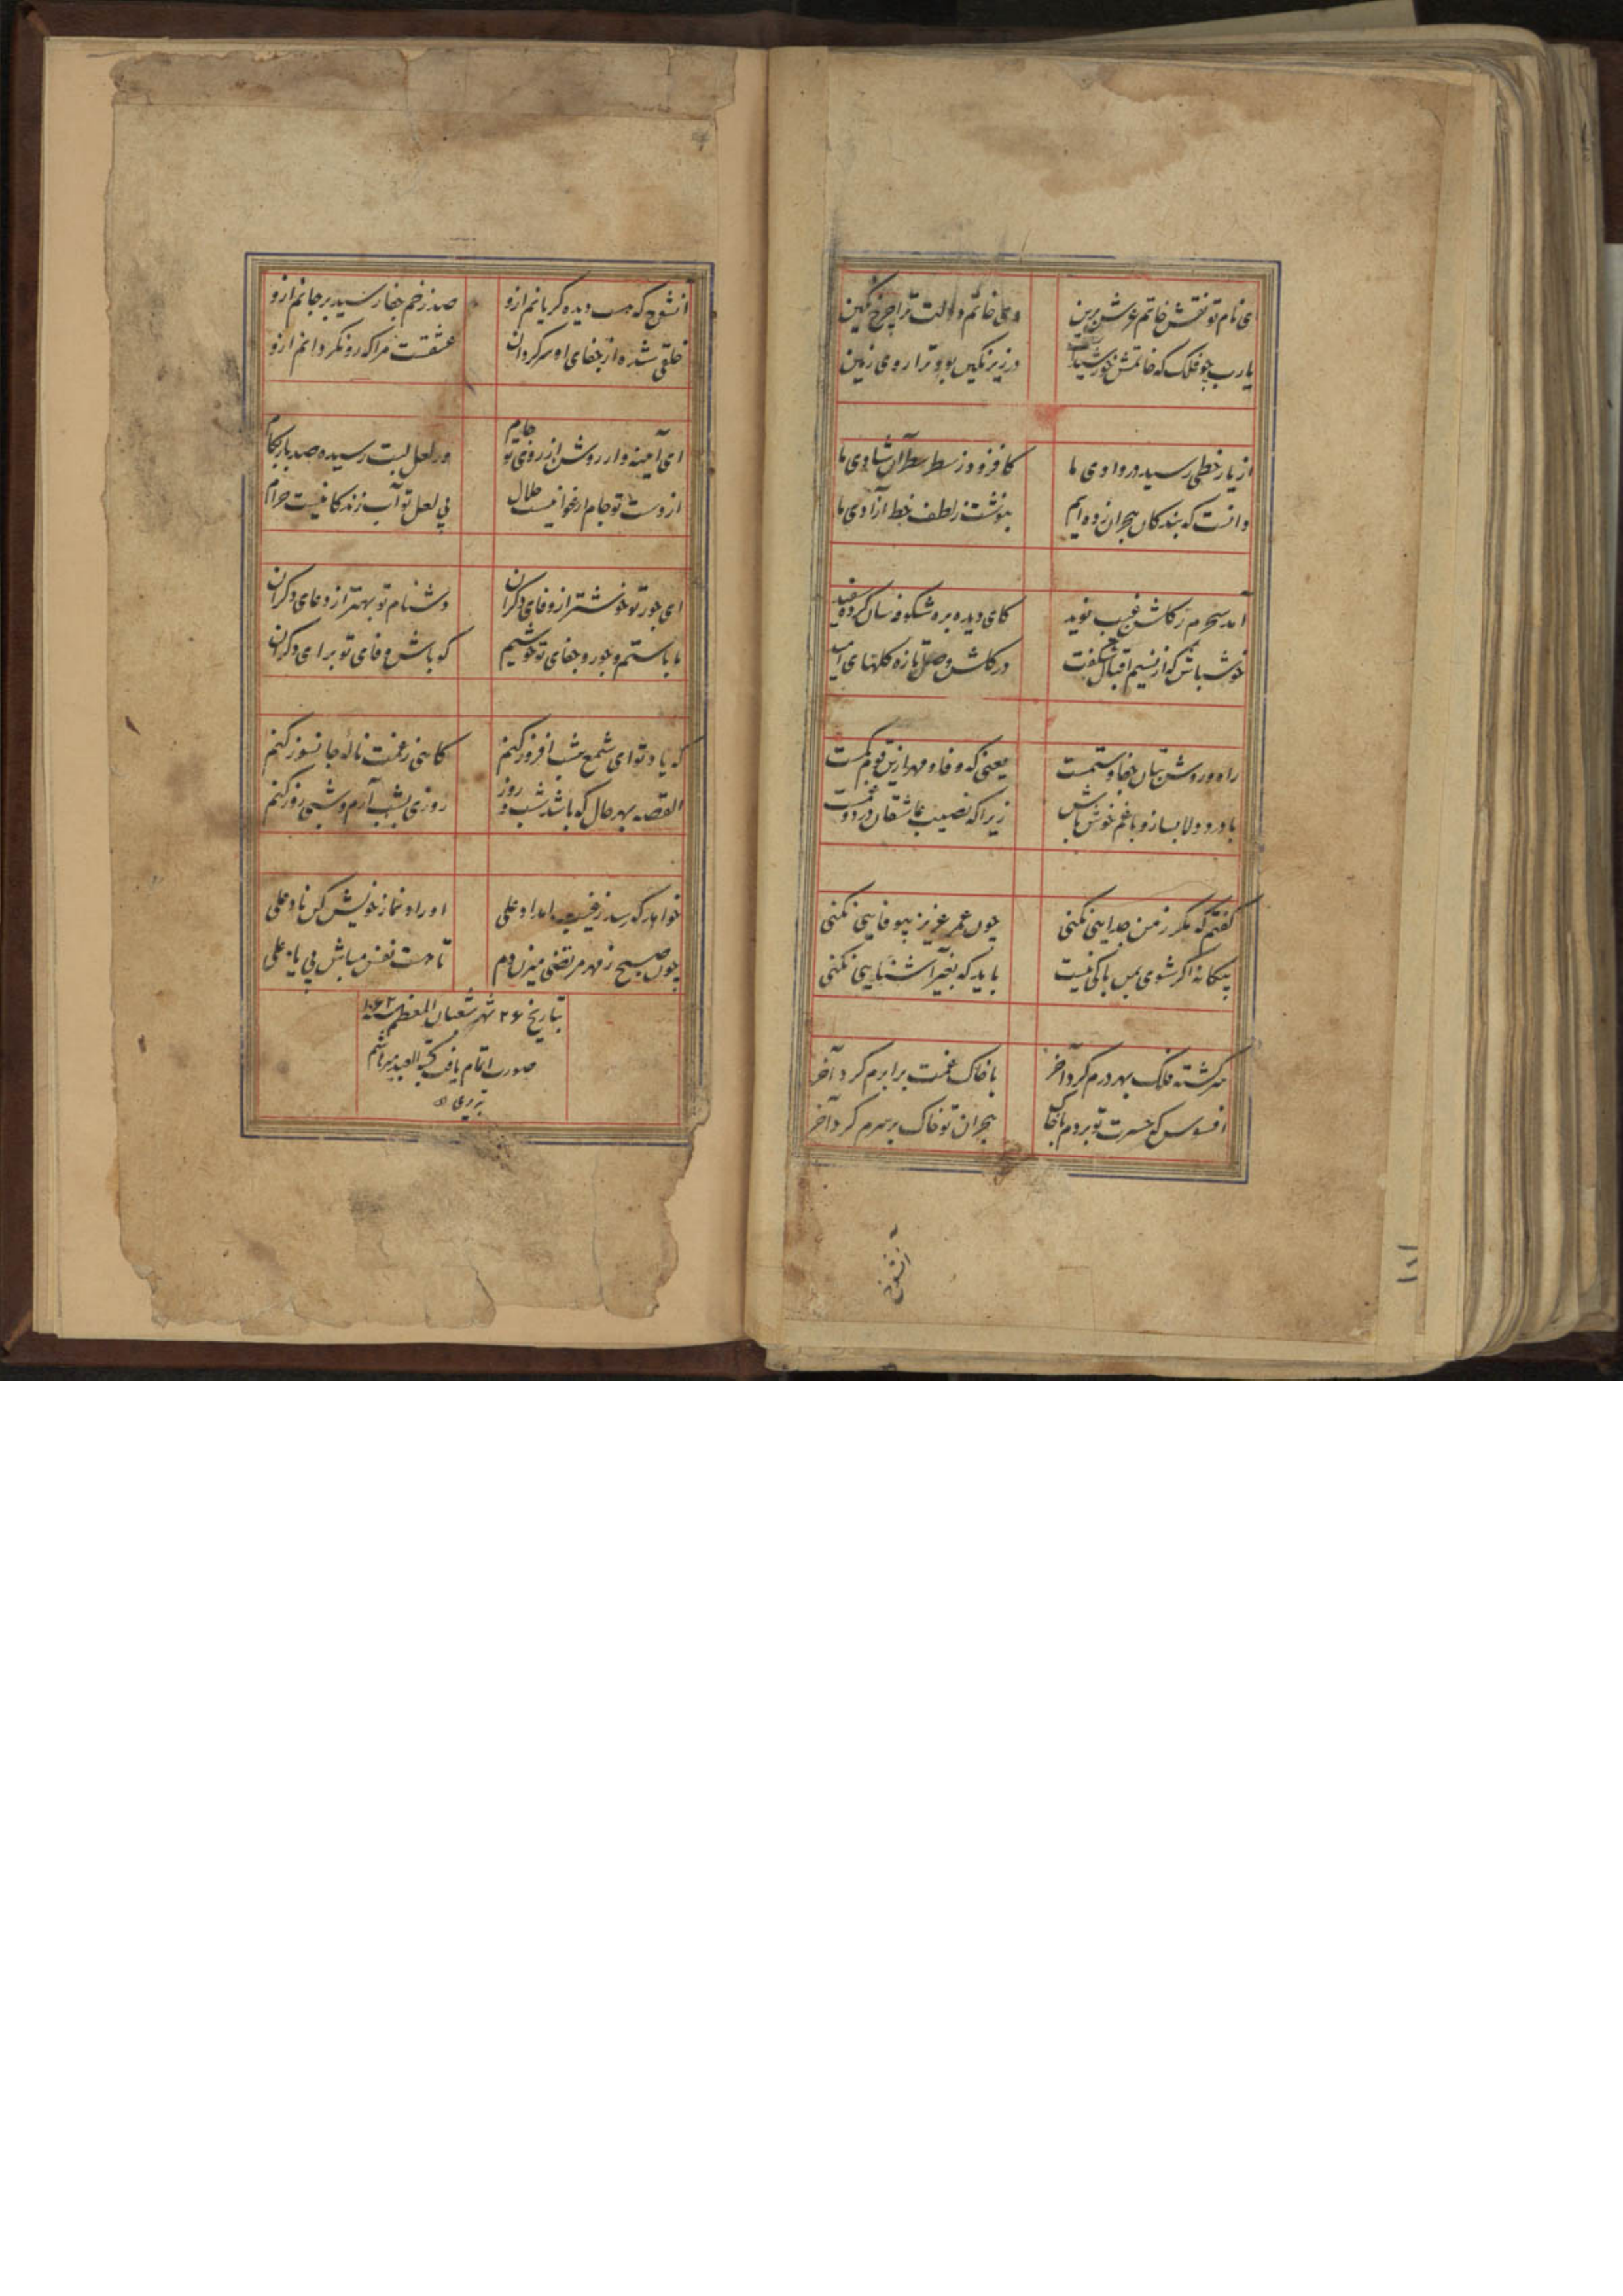 ای نام تو نقش خاتم عرش برین
وی خاتم دولت ترا چرخ نگین
یا رب چو فلک که خاتمش خورشید است
در زیر نگین بود ترا روی زمین
از یار خطی رسید در وادی ما
کافزود ز سطر سطر آن شادی ما
دانست که بندگان هجران زده ایم
بنوشت ز لطف خط آزادی ما
آمد سحرم ز گلشن غیب نوید
کای دیده بره شکوفه سان کرده سفید
خوش باش که از نسیم اقبال شکفت
در گلشن وصل تازه گلهای امید
راه و روش بتان جفا و ستمست
یعنی که وفا و مهر ازین قوم کمست
با درد دلا بساز و با غم خوش باش
زیرا که نصیب عاشقان درد و غمست
گفتم که مگر ز من جدایی نکنی
چون عمر عزیز بیوفایی نکنی
بیگانه اگر شوی بمن باکی نیست
باید که بغیر آشنایی نکنی
سرگشته فلک بهر درم کرد آخر
با خاک غمت برابرم کرد آخر
افسوس که حسرت تو بردم با خاک
هجران تو خاک بر سرم کرد آخر
آنشوخ
۱۰۱
آنشوخ که هست دیده گریانم ازو
صد زخم جفا رسید بر جانم ازو
خلقی شده از جفای او سرگردان
عشقست مرا که رو نگردانم ازو
ای آینه وار روشن از روی تو جام
وز لعل لبت رسیده صد بار بکام
از دست تو جام ارغوانیست حلال
بی لعل تو آب زندگانیست حرام
ای جور تو خوشتر از وفای دگران
دشنام تو بهتر از دعای دگران
ما با ستم و جور و جفای تو خوشیم
گو باش وفای تو برای دگران
گه یاد تو ای شمع شب افروز کنم
گاهی ز غمت ناله جانسوز کنم
القصه بهر حال که باشد شب و روز
روزی بشب آرم و شبی روز کنم
خواهد که رسد ز غیب امداد علی
اوراد نماز خویش کن ناد علی
چون صبح ز مهر مرتضی میزن دم
تا هست نفس مباش بی یاد علی
بتاریخ ۲۶ شهر شعبان المعظم سنه ۱۰۶۲
صورت اتمام یافت کتبه العبد میر هاشم